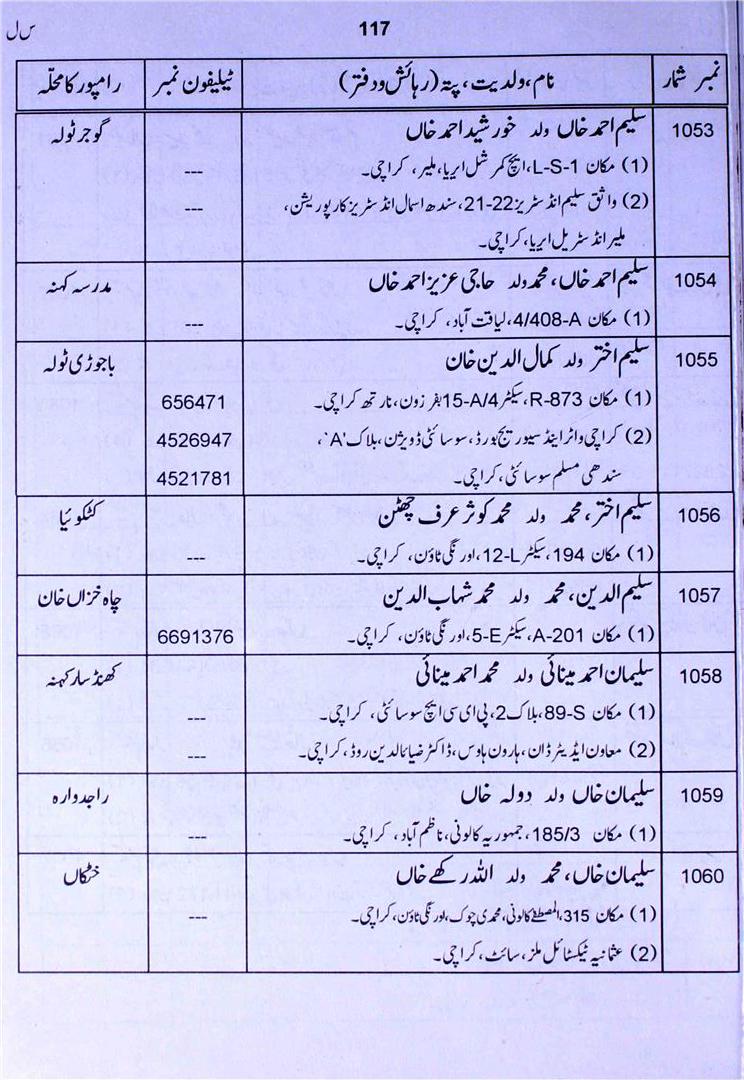 س ل
117
نمبر شمار	نام، ولدیت، پتہ (رہائش و دفتر)	ٹیلیفون نمبر	رامپور کا محلّہ
1053	سلیم احمد خاں ولد خورشید احمد خاں	گوجر ٹولہ
(1) مکان L-S-1، ایچ کمرشل ایریا، ملیر، کراچی۔	---
(2) واثق سلیم انڈسٹریز 22-21، سندھ اسمال انڈسٹریز کارپوریشن،	---
ملیر انڈسٹریل ایریا، کراچی۔
1054	سلیم احمد خاں، محمد ولد حاجی عزیز احمد خاں	مدرسہ کہنہ
(1) مکان 4/408-A، لیاقت آباد، کراچی۔	---
1055	سلیم اختر ولد کمال الدین خان	باجوڑی ٹولہ
(1) مکان R-873، سیکٹر 15-A/4 بفر زون، نارتھ کراچی۔	656471
(2) کراچی واٹر اینڈ سیوریج بورڈ، سوسائٹی ڈویژن، بلاک 'A'،	4526947
سندھی مسلم سوسائٹی، کراچی۔	4521781
1056	سلیم اختر، محمد ولد محمد کوثر عرف چھٹن	کٹکوئیا
(1) مکان 194، سیکٹر 12-L، اورنگی ٹاؤن، کراچی۔	---
1057	سلیم الدین، محمد ولد محمد شہاب الدین	چاہ خزاں خان
(1) مکان A-201، سیکٹر 5-E، اورنگی ٹاؤن، کراچی۔	6691376
1058	سلیمان احمد مینائی ولد محمد احمد مینائی	کھنڈسار کہنہ
(1) مکان 89-S، بلاک 2، پی ای سی ایچ سوسائٹی، کراچی۔	---
(2) معاون ایڈیٹر ڈان، ہارون ہاوس، ڈاکٹر ضیاءالدین روڈ، کراچی۔	---
1059	سلیمان خاں ولد دولہ خاں	راجدوارہ
(1) مکان 185/3، جمہوریہ کالونی، ناظم آباد، کراچی۔	---
1060	سلیمان خاں، محمد ولد اللہ رکھے خاں	خٹکاں
(1) مکان 315، المصطفےٰ کالونی، محمدی چوک، اورنگی ٹاؤن، کراچی۔	---
(2) عثمانیہ ٹیکسٹائل ملز، سائٹ، کراچی۔